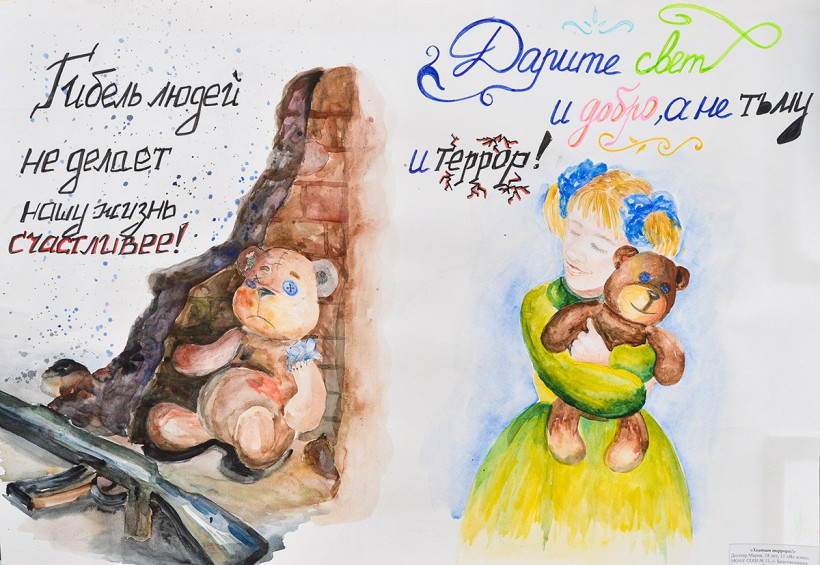 Гибель людей
не делает
нашу жизнь
счастливее!
Дарите свет
и добро, а не тьму
и террор!